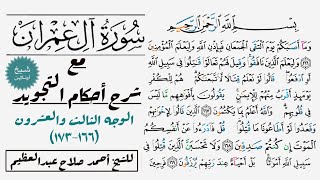 سورة آل عمران
مع
شرح أحكام التجويد
الوجه الثالث والعشرون
(١٦٦-١٧٣)
للشيخ أحمد صلاح عبدالعظيم
بِسْمِ اللَّهِ الرَّحْمَٰنِ الرَّحِيمِ
وَمَا أَصَابَكُمْ يَوْمَ الْتَقَى الْجَمْعَانِ فَبِإِذْنِ اللَّهِ وَلِيَعْلَمَ الْمُؤْمِنِينَ
١٦٦ وَلِيَعْلَمَ الَّذِينَ نَافَقُوا وَقِيلَ لَهُمْ تَعَالَوْا قَاتِلُوا فِي سَبِيلِ اللَّهِ
أَوِ ادْفَعُوا قَالُوا لَوْ نَعْلَمُ قِتَالًا لَّاتَّبَعْنَاكُمْ هُمْ لِلْكُفْرِ
يَوْمَئِذٍ أَقْرَبُ مِنْهُمْ لِلْإِيمَانِ يَقُولُونَ بِأَفْوَاهِهِم مَّا لَيْسَ
فِي قُلُوبِهِمْ وَاللَّهُ أَعْلَمُ بِمَا يَكْتُمُونَ ١٦٧ الَّذِينَ قَالُوا
لِإِخْوَانِهِمْ وَقَعَدُوا لَوْ أَطَاعُونَا مَا قُتِلُوا قُلْ فَادْرَءُوا
عَنْ أَنفُسِكُمُ الْمَوْتَ إِن كُنتُمْ صَادِقِينَ ١٦٨ وَلَا تَحْسَبَنَّ الَّذِينَ قُتِلُوا
فِي سَبِيلِ اللَّهِ أَمْوَاتًا بَلْ أَحْيَاءٌ عِندَ رَبِّهِمْ يُرْزَقُونَ ١٦٩